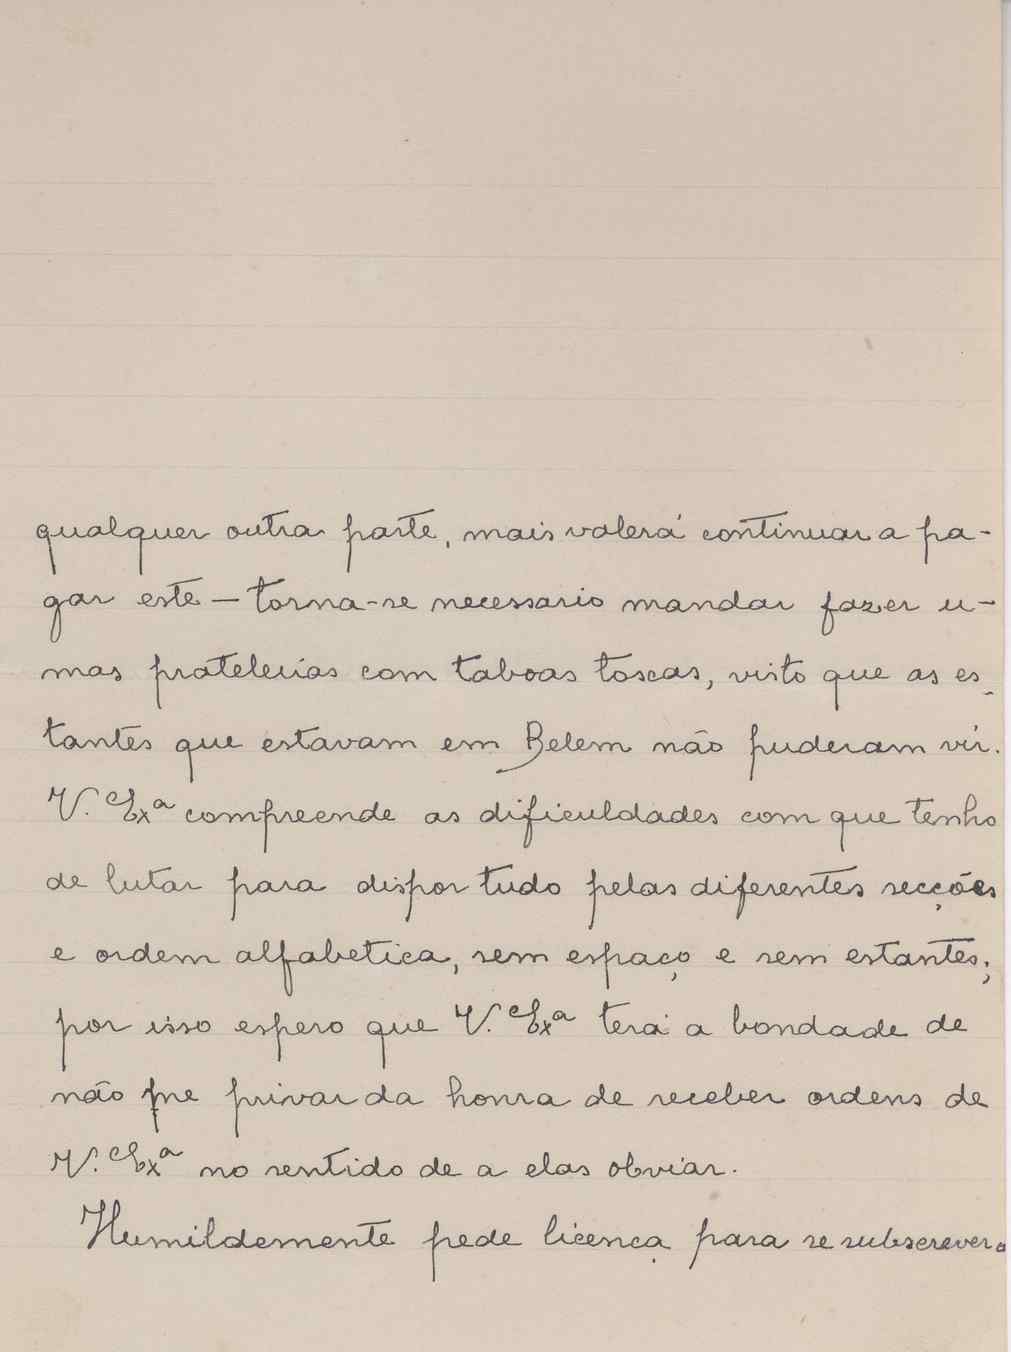 qualquer outra parte, mais valerá continuar a pa-
gar este — torna-se necessario mandar fazer u-
mas prateleiras com taboas toscas, visto que as es-
tantes que estavam em Belem não puderam vir.
V. Exª compreende as dificuldades com que tenho
de lutar para dispor tudo pelas diferentes secções
e ordem alfabetica, sem espaço e sem estantes;
por isso espero que V. Exª terá a bondade de
não me privar da honra de receber ordens de
V. Exª no sentido de a elas obviar.
Humildemente pede licença para se subscrever a